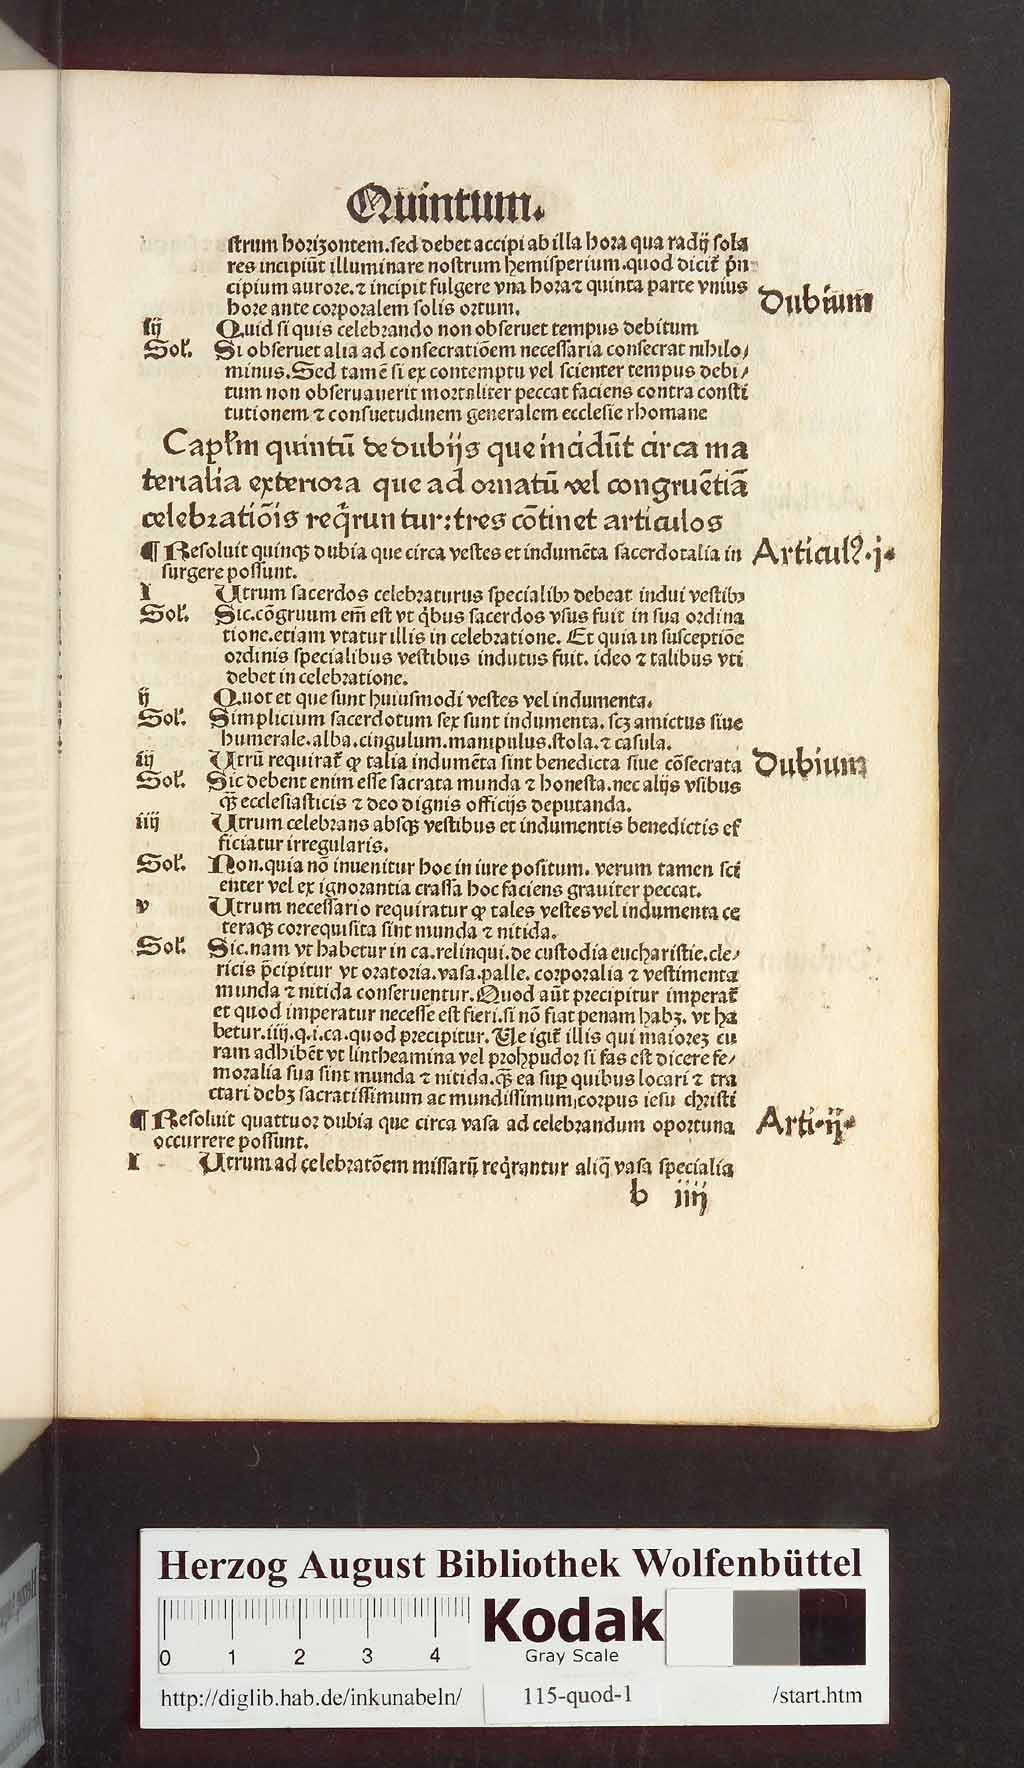 Quintum.
strum horizontem. sed debet accipi ab illa hora qua radij sola
res incipiūt illuminare nostrum hemisperium. quod dicit᷑ p̄n
cipium aurore. ⁊ incipit fulgere vna hora ⁊ quinta parte vnius
hore ante corporalem solis ortum.
Dubium
iij Quid si quis celebrando non obseruet tempus debitum
Sol'. Si obseruet alia ad consecratiōem necessaria consecrat nihilo/
minus. Sed tamē si ex contemptu vel scienter tempus debi/
tum non obseruauerit mortaliter peccat faciens contra consti
tutionem ⁊ consuetudinem generalem ecclesie rhomane
Cap'lm quintū de dubijs que incidūt circa ma
terialia exteriora que ad ornatū vel congruētiā
celebratiōis req̄run tur: tres cōtinet articulos
¶ Resoluit quinq̢ dubia que circa vestes et indumēta sacerdotalia in
surgere possunt.
Articulꝰ. j.
I Utrum sacerdos celebraturus specialibꝫ debeat indui vestibꝫ
Sol'. Sic. cōgruum em̄ est vt q̄bus sacerdos vsus fuit in sua ordina
tione. etiam vtatur illis in celebratione. Et quia in susceptiōe
ordinis specialibus vestibus indutus fuit. ideo ⁊ talibus vti
debet in celebratione.
ij Quot et que sunt huiusmodi vestes vel indumenta.
Sol'. Simplicium sacerdotum sex sunt indumenta. scꝫ amictus siue
humerale. alba. cingulum. manipulus. stola. ⁊ casula.
iij Utrū requirat᷑ ꝙ talia indumēta sint benedicta siue cōsecrata
Dubium
Sol'. Sic debent enim esse sacrata munda ⁊ honesta. nec alijs vsibus
q̄ȝ ecclesiasticis ⁊ deo dignis officijs deputanda.
iiij Utrum celebrans absq̢ vestibus et indumentis benedictis ef
ficiatur irregularis.
Sol'. Non. quia nō inuenitur hoc in iure positum. verum tamen sci
enter vel ex ignorantia crassa hoc faciens grauiter peccat.
v Utrum necessario requiratur ꝙ tales vestes vel indumenta ce
teraq̢ correquisita sint munda ⁊ nitida.
Sol'. Sic. nam vt habetur in ca. relinqui. de custodia eucharistie. cle/
ricis p̄cipitur vt oratoria. vasa. palle. corporalia ⁊ vestimenta
munda ⁊ nitida conseruentur. Quod aūt precipitur imperat᷑
et quod imperatur necesse est fieri. si nō fiat penam habꝫ. vt ha
betur. iiij. q. i. ca. quod precipitur. Ve igit᷑ illis qui maiorez cu
ram adhibēt vt lintheamina vel prohpudor si fas est dicere fe/
moralia sua sint munda ⁊ nitida. q̄ȝ ea suꝑ quibus locari ⁊ tra
ctari debꝫ sacratissimum ac mundissimum, corpus iesu christi
¶ Resoluit quattuor dubia que circa vasa ad celebrandum oportuna
occurrere possunt.
Arti. ij.
I Utrum ad celebratōem missarū req̄rantur aliq̄ vasa specialia
b iiij
Herzog August Bibliothek Wolfenbüttel
0 1 2 3 4
Kodak
Gray Scale
http://diglib.hab.de/inkunabeln/ 115-quod-1 /start.htm